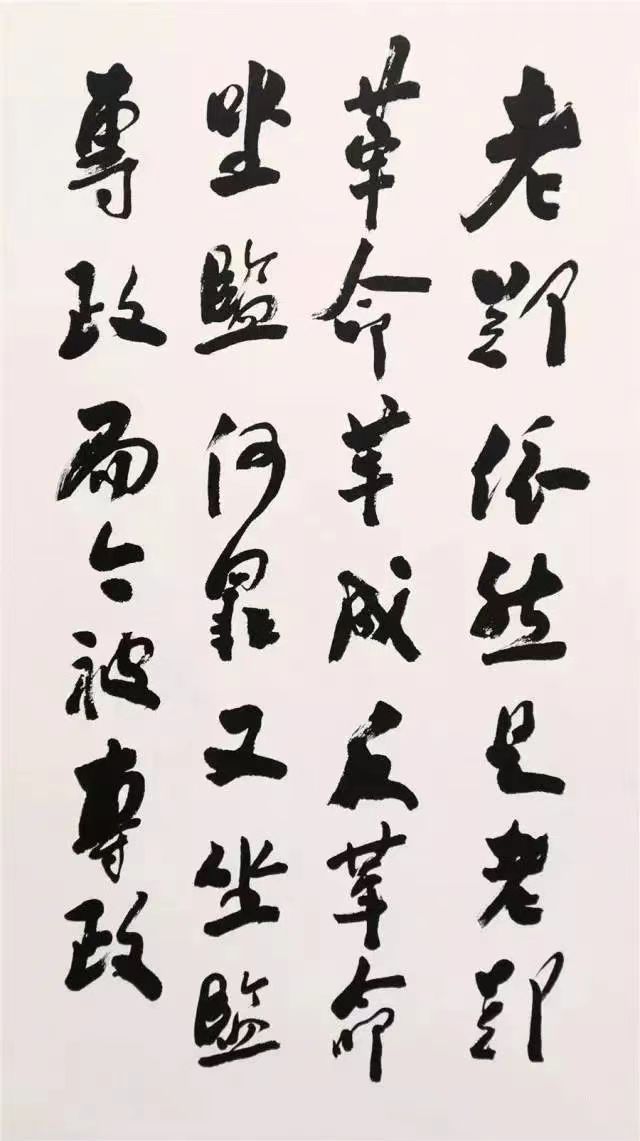 老鄧依然是老鄧
革命革成反革命
坐監何罪又坐監
專政而今被專政